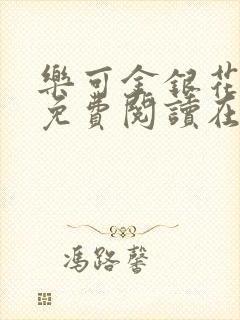 樂可金銀花
免費閱讀在
馮路馨